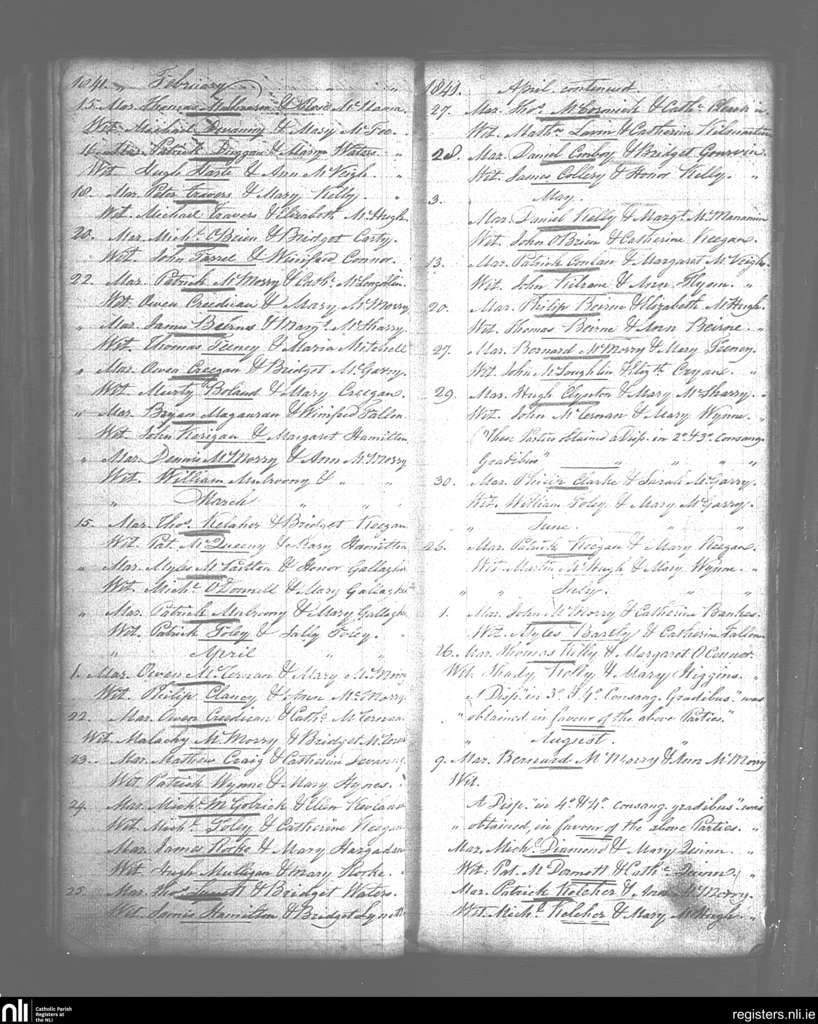 1841. " February " " "
15. Mar. Thomas & Rose McManus
Wit. Michael & Mary McTee.
16. Mar. Patrick Duggan & Mary Waters. "
Wit. Hugh Harte & Ann McVeigh. "
18. Mar. Peter Travers & Mary Kelly. "
Wit. Michael Travers & Elizabeth McHugh.
20. Mar. Michl. O'Brien & Bridget Carty.
Wit. John Farrel & Winifred Connor.
22. Mar. Patrick McMorry & Cathe. McLoughlin.
Wit. Owen Creedican & Mary McMorry
" Mar. James Beirne & Margt. McSharry.
Wit. Thomas Feeney & Maria Mitchell
" Mar. Owen Creegan & Bridget McGarry.
Wit. Murty Boland & Mary Creegan.
" Mar. Bryan Magauran & Winifred Fallon.
Wit. John Kerigan & Margaret Hamilton.
" Mar. Dennis McMorry & Ann McMorry
Wit. William Mulroony & " "
" March " "
15. Mar. Thos. Kelaher & Bridget Keegan
Wit. Pat. McQueeny & Mary Hamilton
" Mar. Myles McPartlin & Honor Gallagher
Wit. Michl. O'Donnell & Mary Gallagher
" Mar. Patrick Mulroony & Mary Gallagher
Wit. Patrick Foley & Sally Foley. "
" April " "
1. Mar. Owen McTernan & Mary McMorry
Wit. Philip Clancy & Ann McMorry.
22. Mar. Owen Creedican & Cathe. McTernan
Wit. Malachy McMorry & Bridget McTernan
23. Mar. Mathew Craig & Catherine
Wit. Patrick Wynne & Mary Hynes.
24. Mar. Michl. McGolrick & Ellen
Wit. Michl. Foley & Catherine Keegan
Mar. James Rorke & Mary Hargadon
Wit. Hugh Mulligan & Mary Rorke. "
25. Mar. Thos. & Bridget Waters.
Wit. James Hamilton & Bridget Lynott
1841. April continued
27. Mar. Thos. McCormick & Cathe.
Wit. Mathw. Lavin & Catherine Kilmartin
28. Mar. Daniel Conboy & Bridget
Wit. James Collery & Honor Kelly. "
3. " May. "
Mar. Daniel Kelly & Margt. McManamin
Wit. John O'Brien & Catherine Keegan.
13. Mar. Patrick Conlan & Margaret McVeigh.
Wit. John & Ann Flynn. "
20. Mar. Philip Beirne & Elizabeth McHugh.
Wit. Thomas Beirne & Ann Beirne. "
27. Mar. Bernard McMorry & Mary Feeney.
Wit. John McLoughlin & Elizth. Cryan.
29. Mar. Hugh Clynton & Mary McSharry.
Wit. John McTernan & Mary Wynne. "
("These Parties obtained a Disp. in 2o. & 3o. Consang.
Gradibus" " " " "
30. Mar. Philip Clarke & Sarah McGarry.
Wit. William Foley & Mary McGarry.
" " June. " "
26. Mar. Patrick Keegan & Mary Keegan.
Wit. Martin McHugh & Mary Wynne. "
" " July. " "
1. Mar. John McMorry & Catherine Banks.
Wit. Myles Bartly & Catherine Fallon
26. Mar. Thomas Kelly & Margaret O'Connor.
Wit. Thady Kelly & Mary Higgins. "
"A Disp." in 3o. & 4o. Consang. Gradibus" was
" obtained in favour of the above Parties."
" August. "
9. Mar. Bernard McMorry & Ann McMorry
Wit.
A Disp. "in 4o. & 4o. consang. gradibus" was
" obtained, in favour of the above Parties. "
Mar. Michl. Diamond & Mary Quinn. "
Wit. Pat. McDermott & Cathe. Quinn. "
Mar. Patrick Kelcher & Ann McMorry.
Wit. Michl. Kelcher & Mary McHugh. "
nli Catholic Parish
Registers at
the NLI
registers.nli.ie